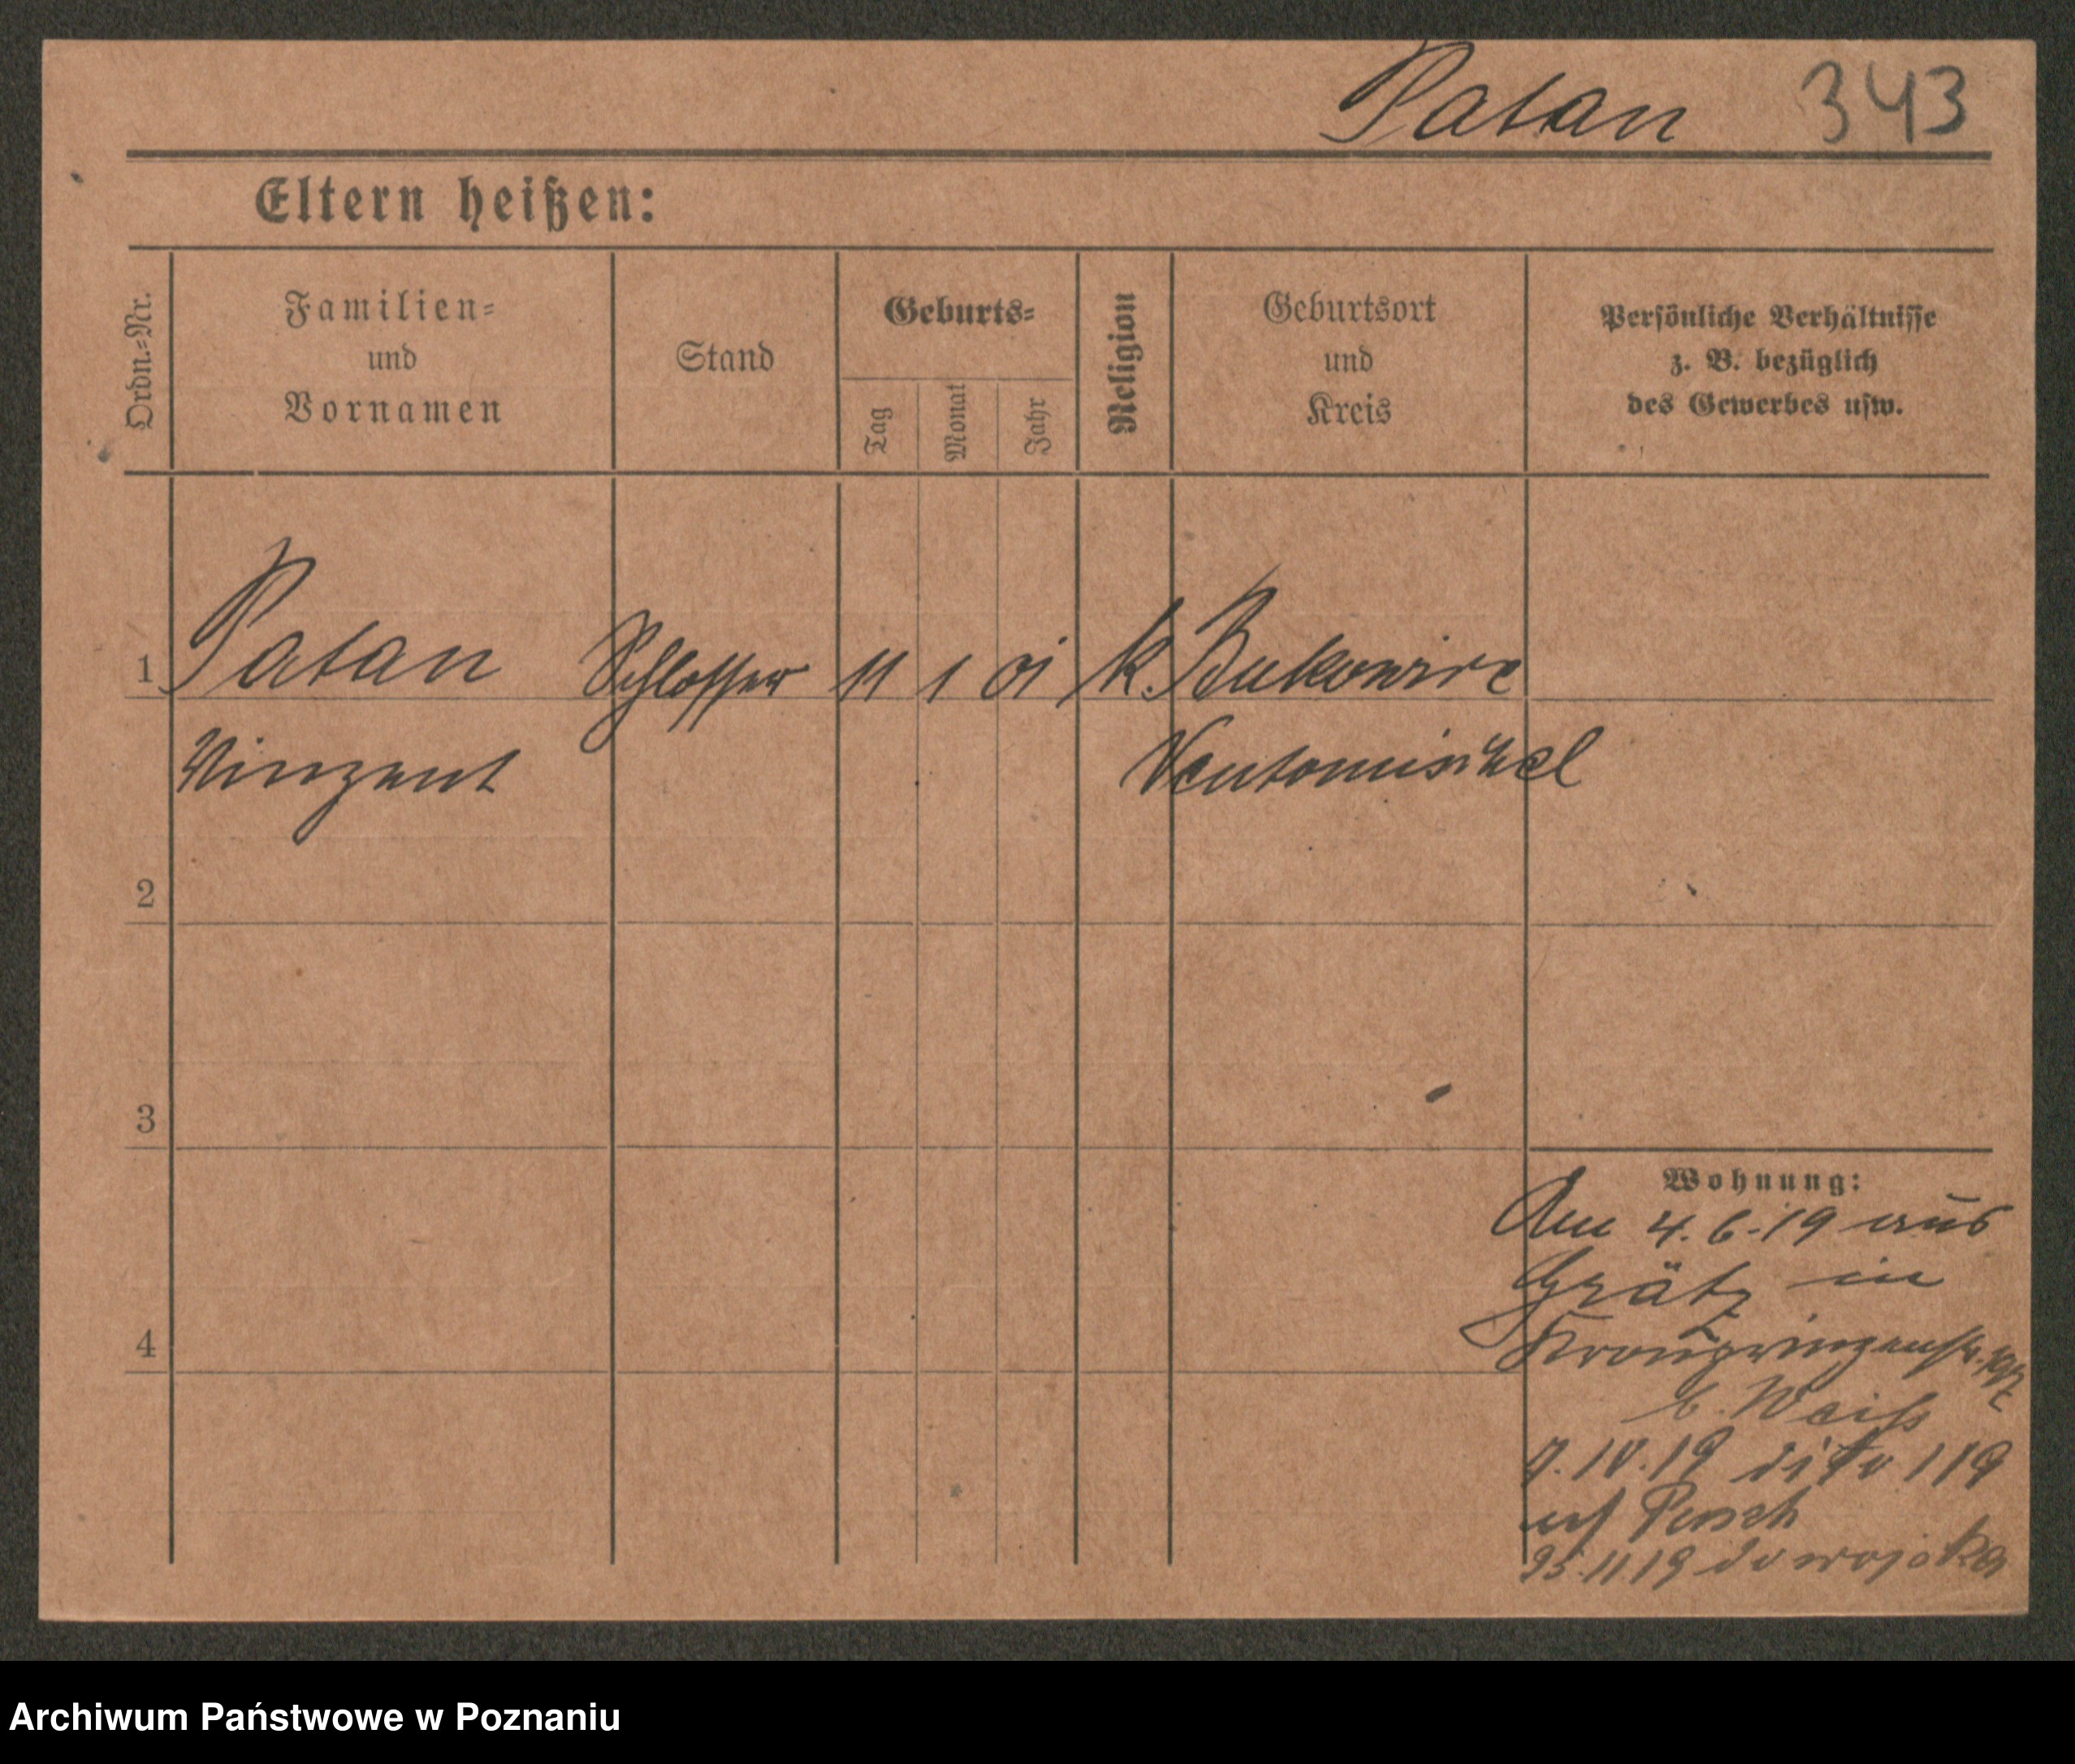 Patan 343
Eltern heißen:
Ordn.-Nr.
Familien-
und
Vornamen
Stand
Geburts-
Tag
Monat
Jahr
Religion
Geburtsort
und
Kreis
Persönliche Verhältnisse
z. B. bezüglich
des Gewerbes usw.
1 Patan Schlosser 11 1 01 k. Bukowiec
Vinzent Neutomischel
2
3
4
Wohnung:
Am 4.6.19 aus
Grätz in
Kronprinzenstr.
b. Weiß
IV.19 dito 119
25.11 19 do wojska
Archiwum Państwowe w Poznaniu